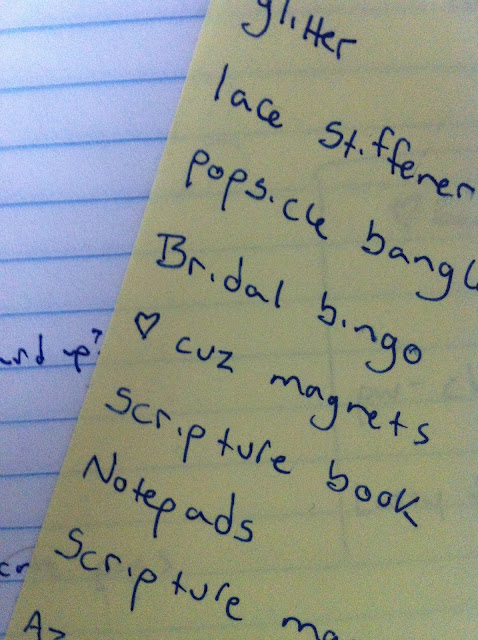 glitter
lace stiffener
popsicle bangl
Bridal bingo
♡ cuz magnets
Scripture book
Notepads
Scripture ma
Az
up?